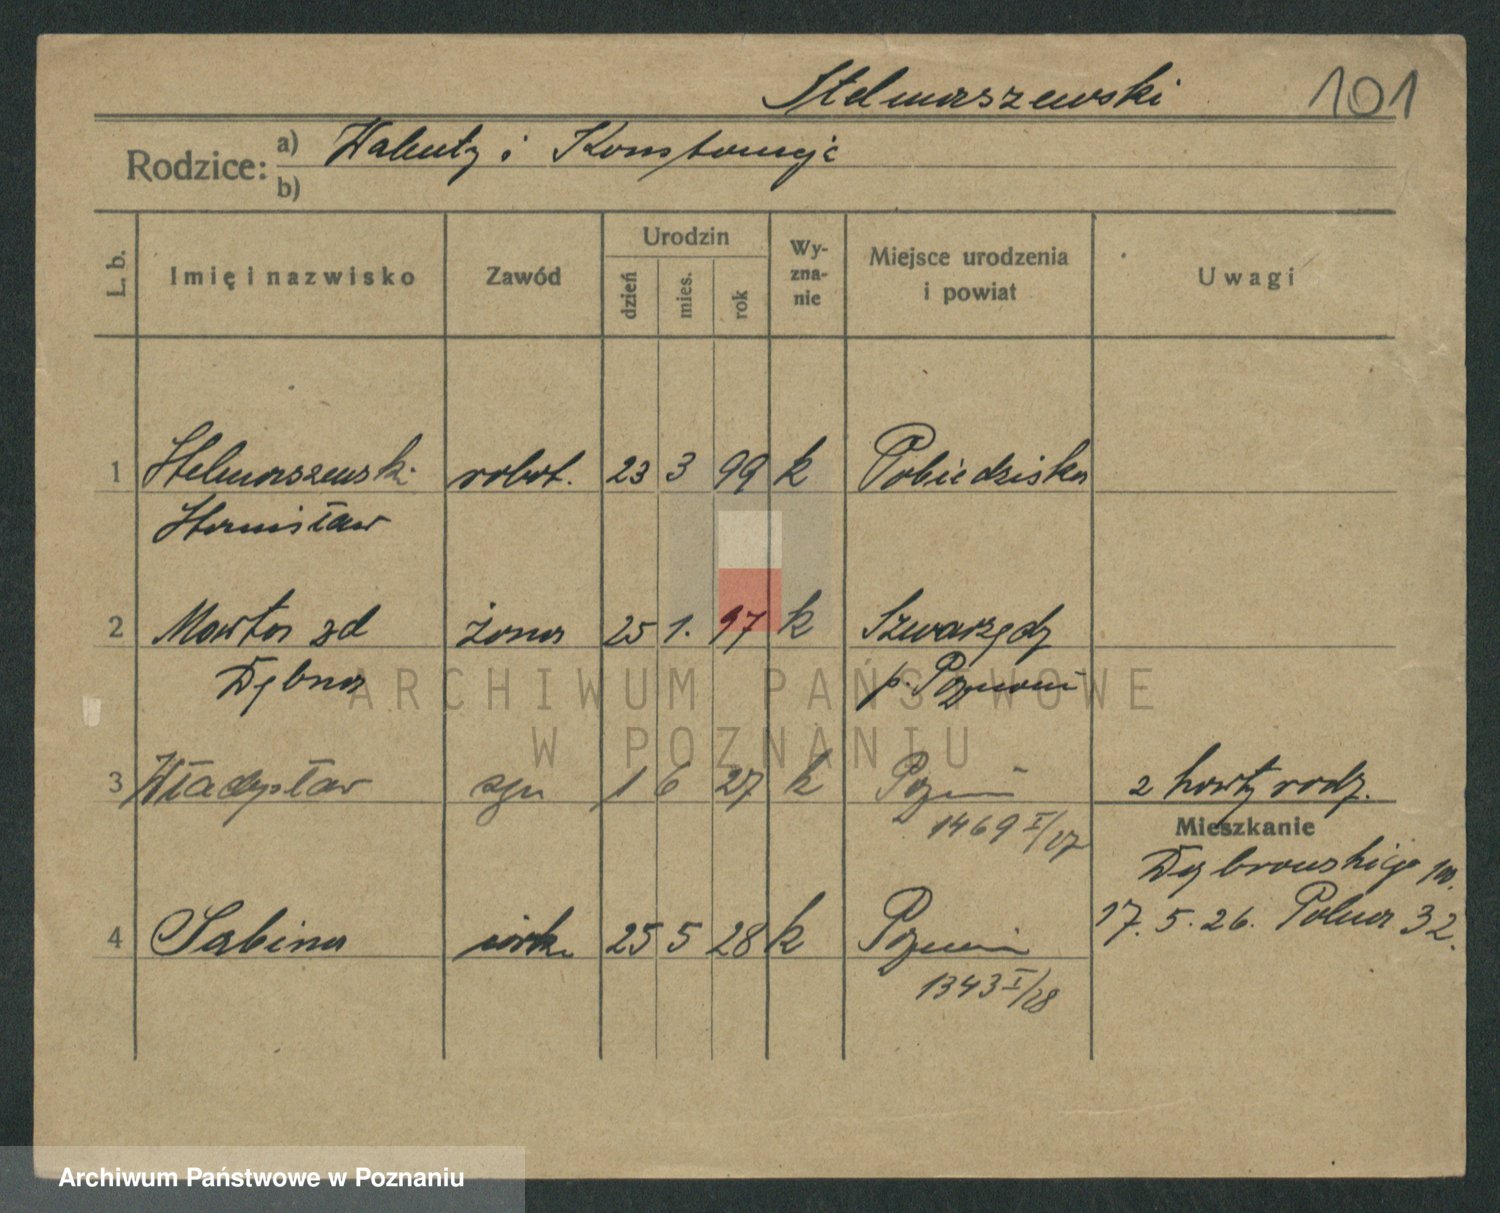 Stelmaszewski 101
Rodzice: a) Walenty i Konstancja
b)
L. b. Imię i nazwisko Zawód Urodzin dzień mies. rok Wyznanie Miejsce urodzenia i powiat Uwagi
1 Stelmaszewski robot. 23 3 99 k Pobiedziska
Stanisław
2 Marta zd żona 25 1. 97 k Szwarzędz
Dębna p. Poznań
3 Władysław syn 1 6 27 k Poznań 2 karty rodz.
1469 I/27
Mieszkanie
Dąbrowskiego
4 Sabina córka 25 5 28 k Poznań 17. 5. 26. Polna 32.
1343 I/28
ARCHIWUM PAŃSTWOWE
W POZNANIU
Archiwum Państwowe w Poznaniu